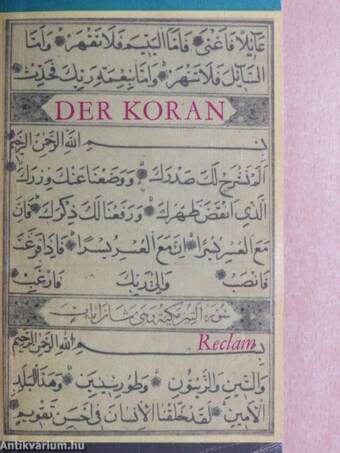 عَائِلًا فَاَغْنٰى فَاَمَّا الْيَتِيمَ فَلَا تَقْهَرْ وَاَمَّا
السَّائِلَ فَلَا تَنْهَرْ وَاَمَّا بِنِعْمَةِ رَبِّكَ فَحَدِّثْ
DER KORAN
بِسْمِ اللّٰهِ الرَّحْمٰنِ الرَّحِيمِ
اَلَمْ نَشْرَحْ لَكَ صَدْرَكَ وَوَضَعْنَا عَنْكَ وِزْرَكَ
الَّذِي اَنْقَضَ ظَهْرَكَ وَرَفَعْنَا لَكَ ذِكْرَكَ فَاِنَّ
مَعَ الْعُسْرِ يُسْرًا اِنَّ مَعَ الْعُسْرِ يُسْرًا فَاِذَا فَرَغْتَ
فَانْصَبْ وَاِلٰى رَبِّكَ فَارْغَبْ
سورة التين مكية وهي ثمان ايات
Reclam
بِسْمِ اللّٰهِ الرَّحْمٰنِ الرَّحِيمِ
وَالتِّينِ وَالزَّيْتُونِ وَطُورِ سِينِينَ وَهٰذَا الْبَلَدِ
الْاَمِينِ لَقَدْ خَلَقْنَا الْاِنْسَانَ فِي اَحْسَنِ تَقْوِيمٍ
Antikvárium.hu